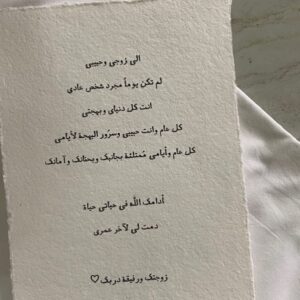 الى زوجي وحبيبي
لم تكن يوماً مجرد شخص عادي
انت كل دنياي وبهجتي
كل عام وانت حبيبي وسرور البهجة لأيامي
كل عام وأيامي ممتلئة بجانبك وبحنانك وآمانك
أدامك الله في حياتي حياة
دمت لي لآخر عمري
زوجتك ورفيقة دربك♡